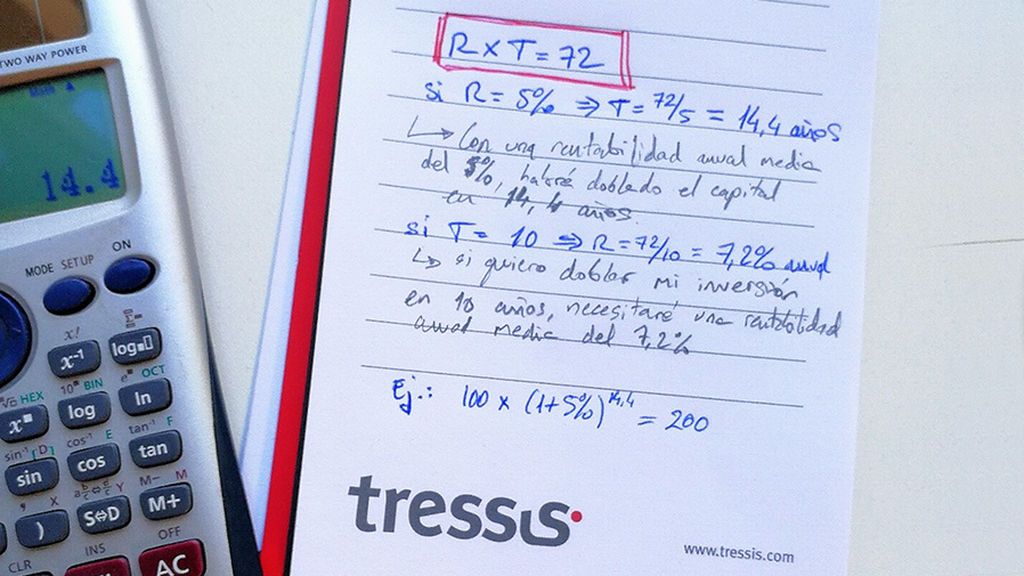 TWO WAY POWER
Math ▲
14.4
ON
MODE SETUP
x!
x⁻¹
log
HEX
10ˣ BIN
eˣ OCT
log
ln
sin⁻¹ D
cos⁻¹ E
tan⁻¹ F
sin
cos
tan
, X
Y
M− M
)
S⇔D
M+
CLR
INS
OFF
AC
R x T = 72
si R = 5% ⇒ T = 72/5 = 14,4 años
↳ Con una rentabilidad anual media
del 5%, habré doblado el capital
en 14,4 años.
si T = 10 ⇒ R = 72/10 = 7,2% anual
↳ si quiero doblar mi inversión
en 10 años, necesitaré una rentabilidad
anual media del 7,2%
Ej.: 100 x (1+5%)^14,4 = 200
tressis
www.tressis.com